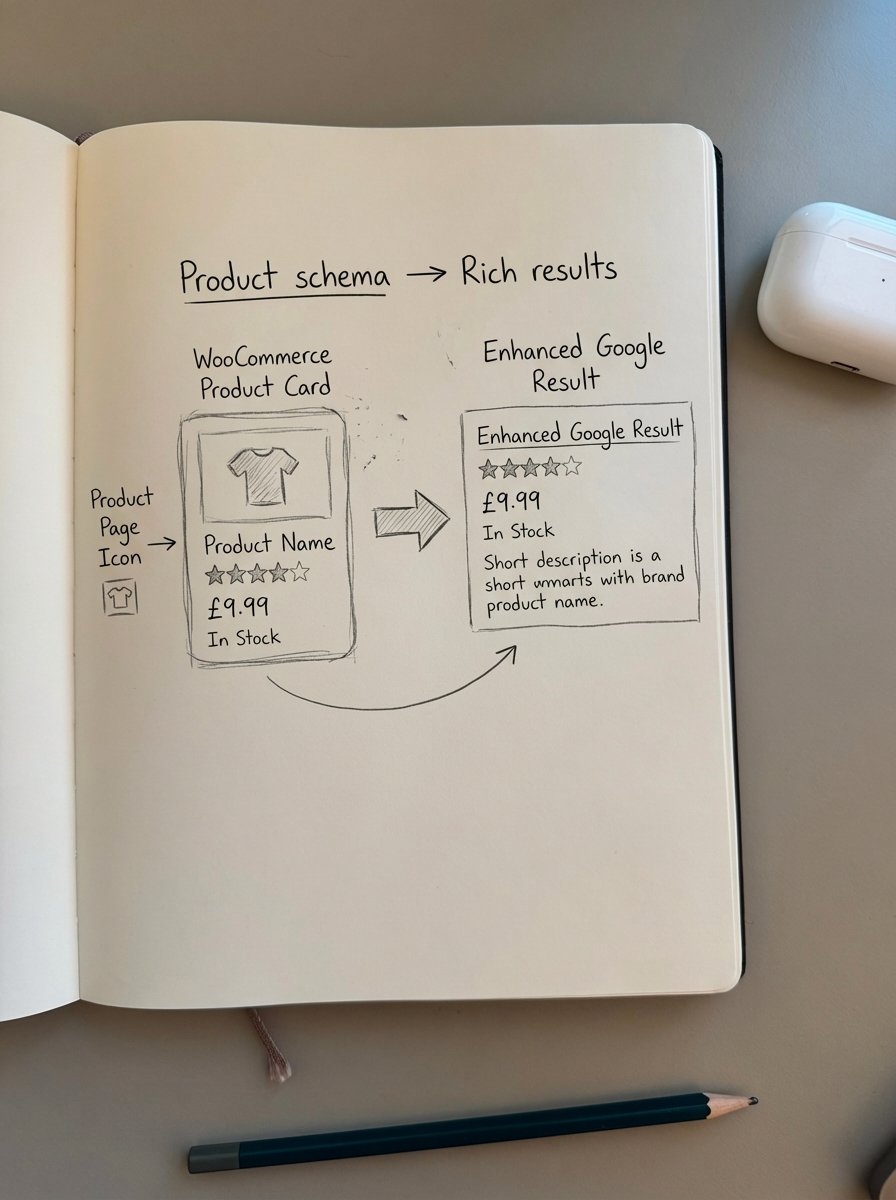 Product schema → Rich results
WooCommerce
Product Card
Enhanced Google
Result
Product
Page
Icon
Product Name
£9.99
In Stock
Enhanced Google Result
£9.99
In Stock
Short description is a
short with brand
product name.